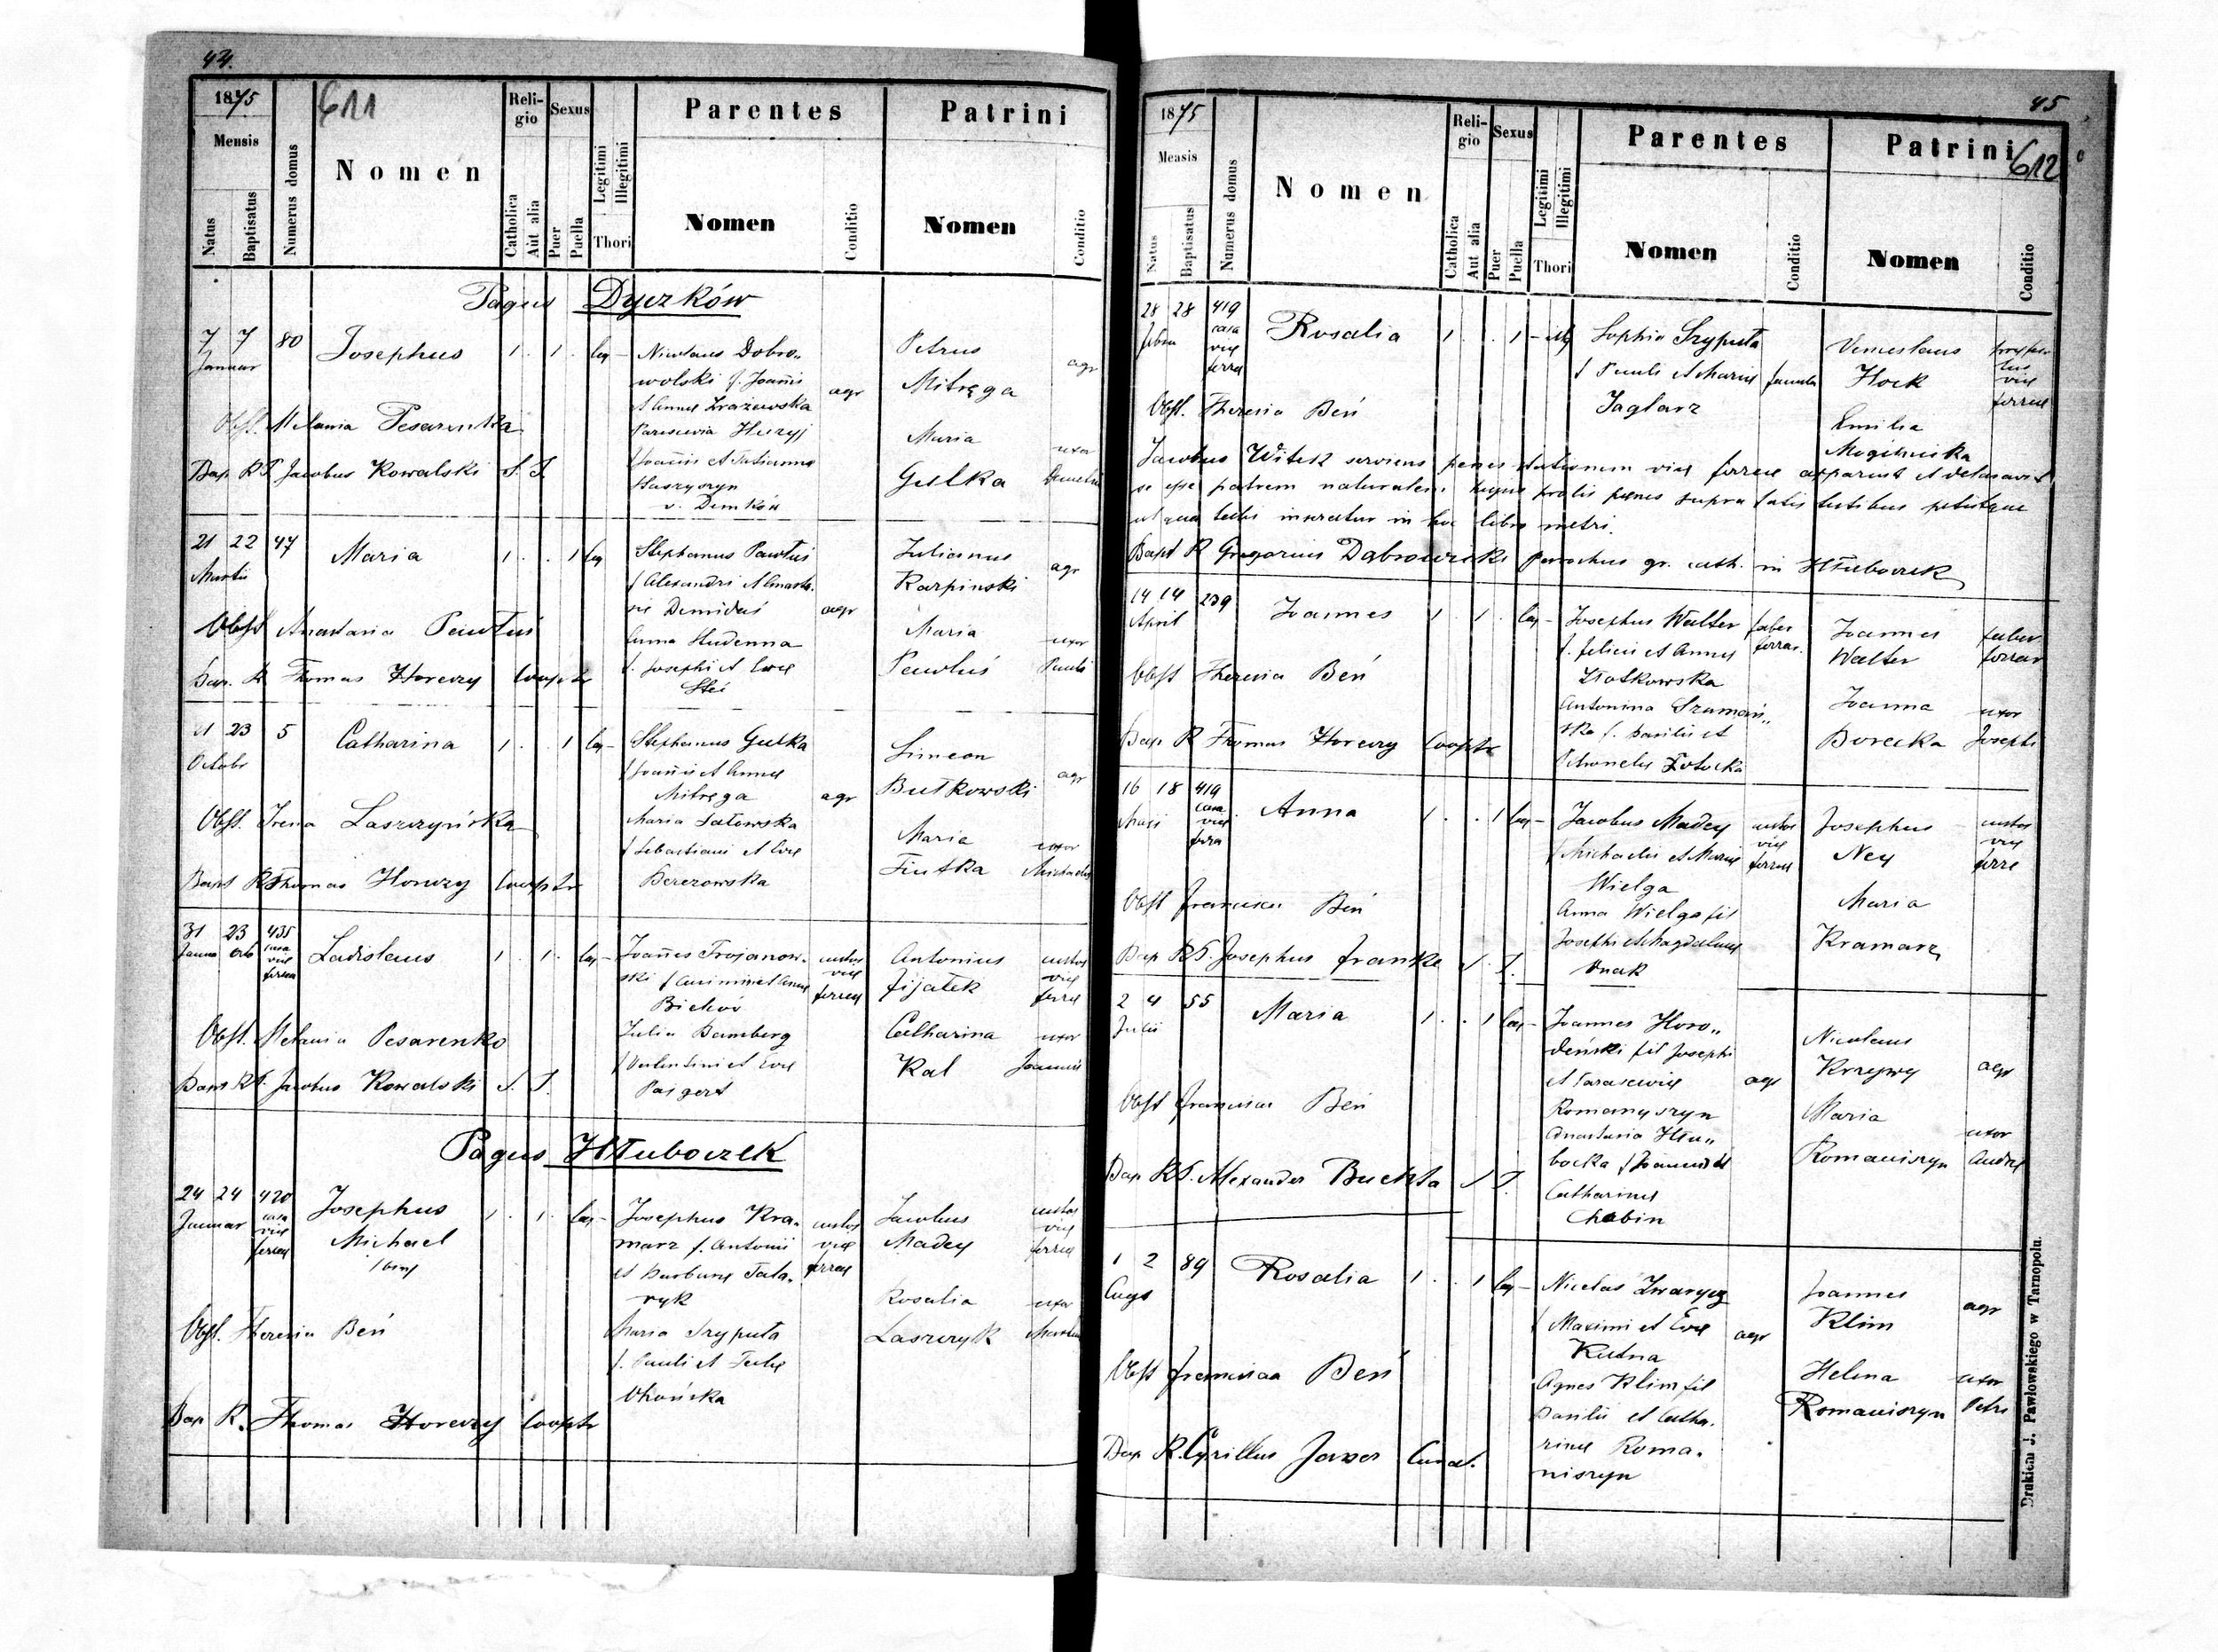 44.
1875
611
Mensis
Natus
Baptisatus
Numerus domus
Nomen
Religio
Catholica
Aut alia
Sexus
Puer
Puella
Legitimi
Illegitimi
Thori
Parentes
Nomen
Conditio
Patrini
Nomen
Conditio
Pagus Dyczków
7 7 80 Josephus 1 . 1 . leg - Nicolaus Dobro„ Petrus
Januar
wolski f. Joañis agr Mitręga agr
et Annae Zrażewska
Obst. Melania Pesarenka
Parascevia Huzyj Maria uxor
Bap RP Jacobus Kowalski S. J.
f Joañis et Tatianna Gulka
Haszyszyn
v. Demków
21 22 47 Maria 1 . . 1 leg Stephanus Pawluś Julianus agr
Martii
f Alexandri et Anasta- Karpinski
Demidaś agr
Obst Anastasia Pawluś
Anna Studenna Maria uxor
f. Josephi et Evae Pawluś Pauli
Bap. R Thomas Horeczy Cooptr
21 23 5 Catharina 1 . . 1 leg - Stephanus Gulka Simeon
Octobr
f Joañis et Annae Butkowski agr
Mitręga agr
Obst. Irena Laszczyńska
Maria Satowska Maria uxor
f Sebastiani et Evae Fiutka Michaelis
Bapt R Thomas Horeczy Cooptr
Berezowska
31 23 435 Ladislaus 1 . 1 . leg - Joañes Trojanow- custos Antonius custos
casa viae ferreae
ski viae ferreae Fijałek viae ferreae
Obst. Melania Pesarenko
Julia Bamberg Catharina uxor
f Valentini et Evae Kal Joannis
Bapt RP. Jacobus Kowalski S. J.
Paigert
Pagus Hłuboczek
24 24 420 Josephus 1 . 1 . leg - Josephus Kra- custos Jacobus custos
Januar casa viae ferreae Michael
marz f. Antonii viae Madey viae
et Barbarae Tata- ferreae ferreae
ryk
Rosalia uxor
Obst. Theresia Beń
Maria Szyputa Laszczyk Martini
f. Pauli et Teclae
Ohońska
Bap R. Thomas Horeczy Cooptr
45
1875
612
Mensis
Natus
Baptisatus
Numerus domus
Nomen
Religio
Catholica
Aut alia
Sexus
Puer
Puella
Legitimi
Illegitimi
Thori
Parentes
Nomen
Conditio
Patrini
Nomen
Conditio
28 28 419 Rosalia 1 . . 1 - illeg Sophia Szyputa
Febru casa viae ferreae
f Pauli et Mariae famula Hock viae ferreae
Jaglarz
Obst. Theresia Beń
Emilia
Jacobus Witek serviens penes stationem viae ferreae apparuit et declaravit
se esse patrem naturalem hujus prolis penes supra latis testibus petiitque
ut qua talis inseratur in hoc libro metri.
Bapt R Gregorius Dąbrowiecki parochus gr. cath. in Hłuboczek
14 14 239 Joannes 1 . 1 . leg - Josephus Walter faber Joannes faber
April
f. Felicis et Annae ferrar. Walter ferrar
Złotkowska
Obst Theresia Beń
Antonina Szumań„ Joanna uxor
ska f. Basilii et Borecka Josephi
Petronelae Zołocka
Bap R Thomas Horeczy Cooptr
16 18 419 Anna 1 . . 1 leg - Jacobus Madey custos Josephus custos
Maji casa viae ferrea
f Michaelis et Mariae viae ferreae Ney viae ferre
Wielga
Obst Francisca Beń
Anna Wielga fil Maria
Josephi et Magdalenae Kramarz
Bap RP. Josephus Franke S. J.
2 4 55 Maria 1 . . 1 leg - Joannes Horo„ Nicolaus
Julii
deński fil Josephi Krzywy agr
et Parasceviae agr
Obst Francisca Beń
Romanyszyn Maria uxor
Anastasia Hłu„ Romaniszyn Andreae
bocka f Joannis et
Bap RP. Alexander Buchta S J.
Catharinae
Chabin
1 2 89 Rosalia 1 . . 1 leg - Nicolas Zwarycz Joannes agr
Augs
f Maximi et Evae agr Klim
Kutna
Obst Francisca Beń
Agnes Klim fil Helena uxor
Basilii et Catha- Romaniszyn Petri
Bap R. Cyrillus Jawor Curat.
rinae Roma-
niszyn
Drukiem J. Pawłowskiego w Tarnopolu.